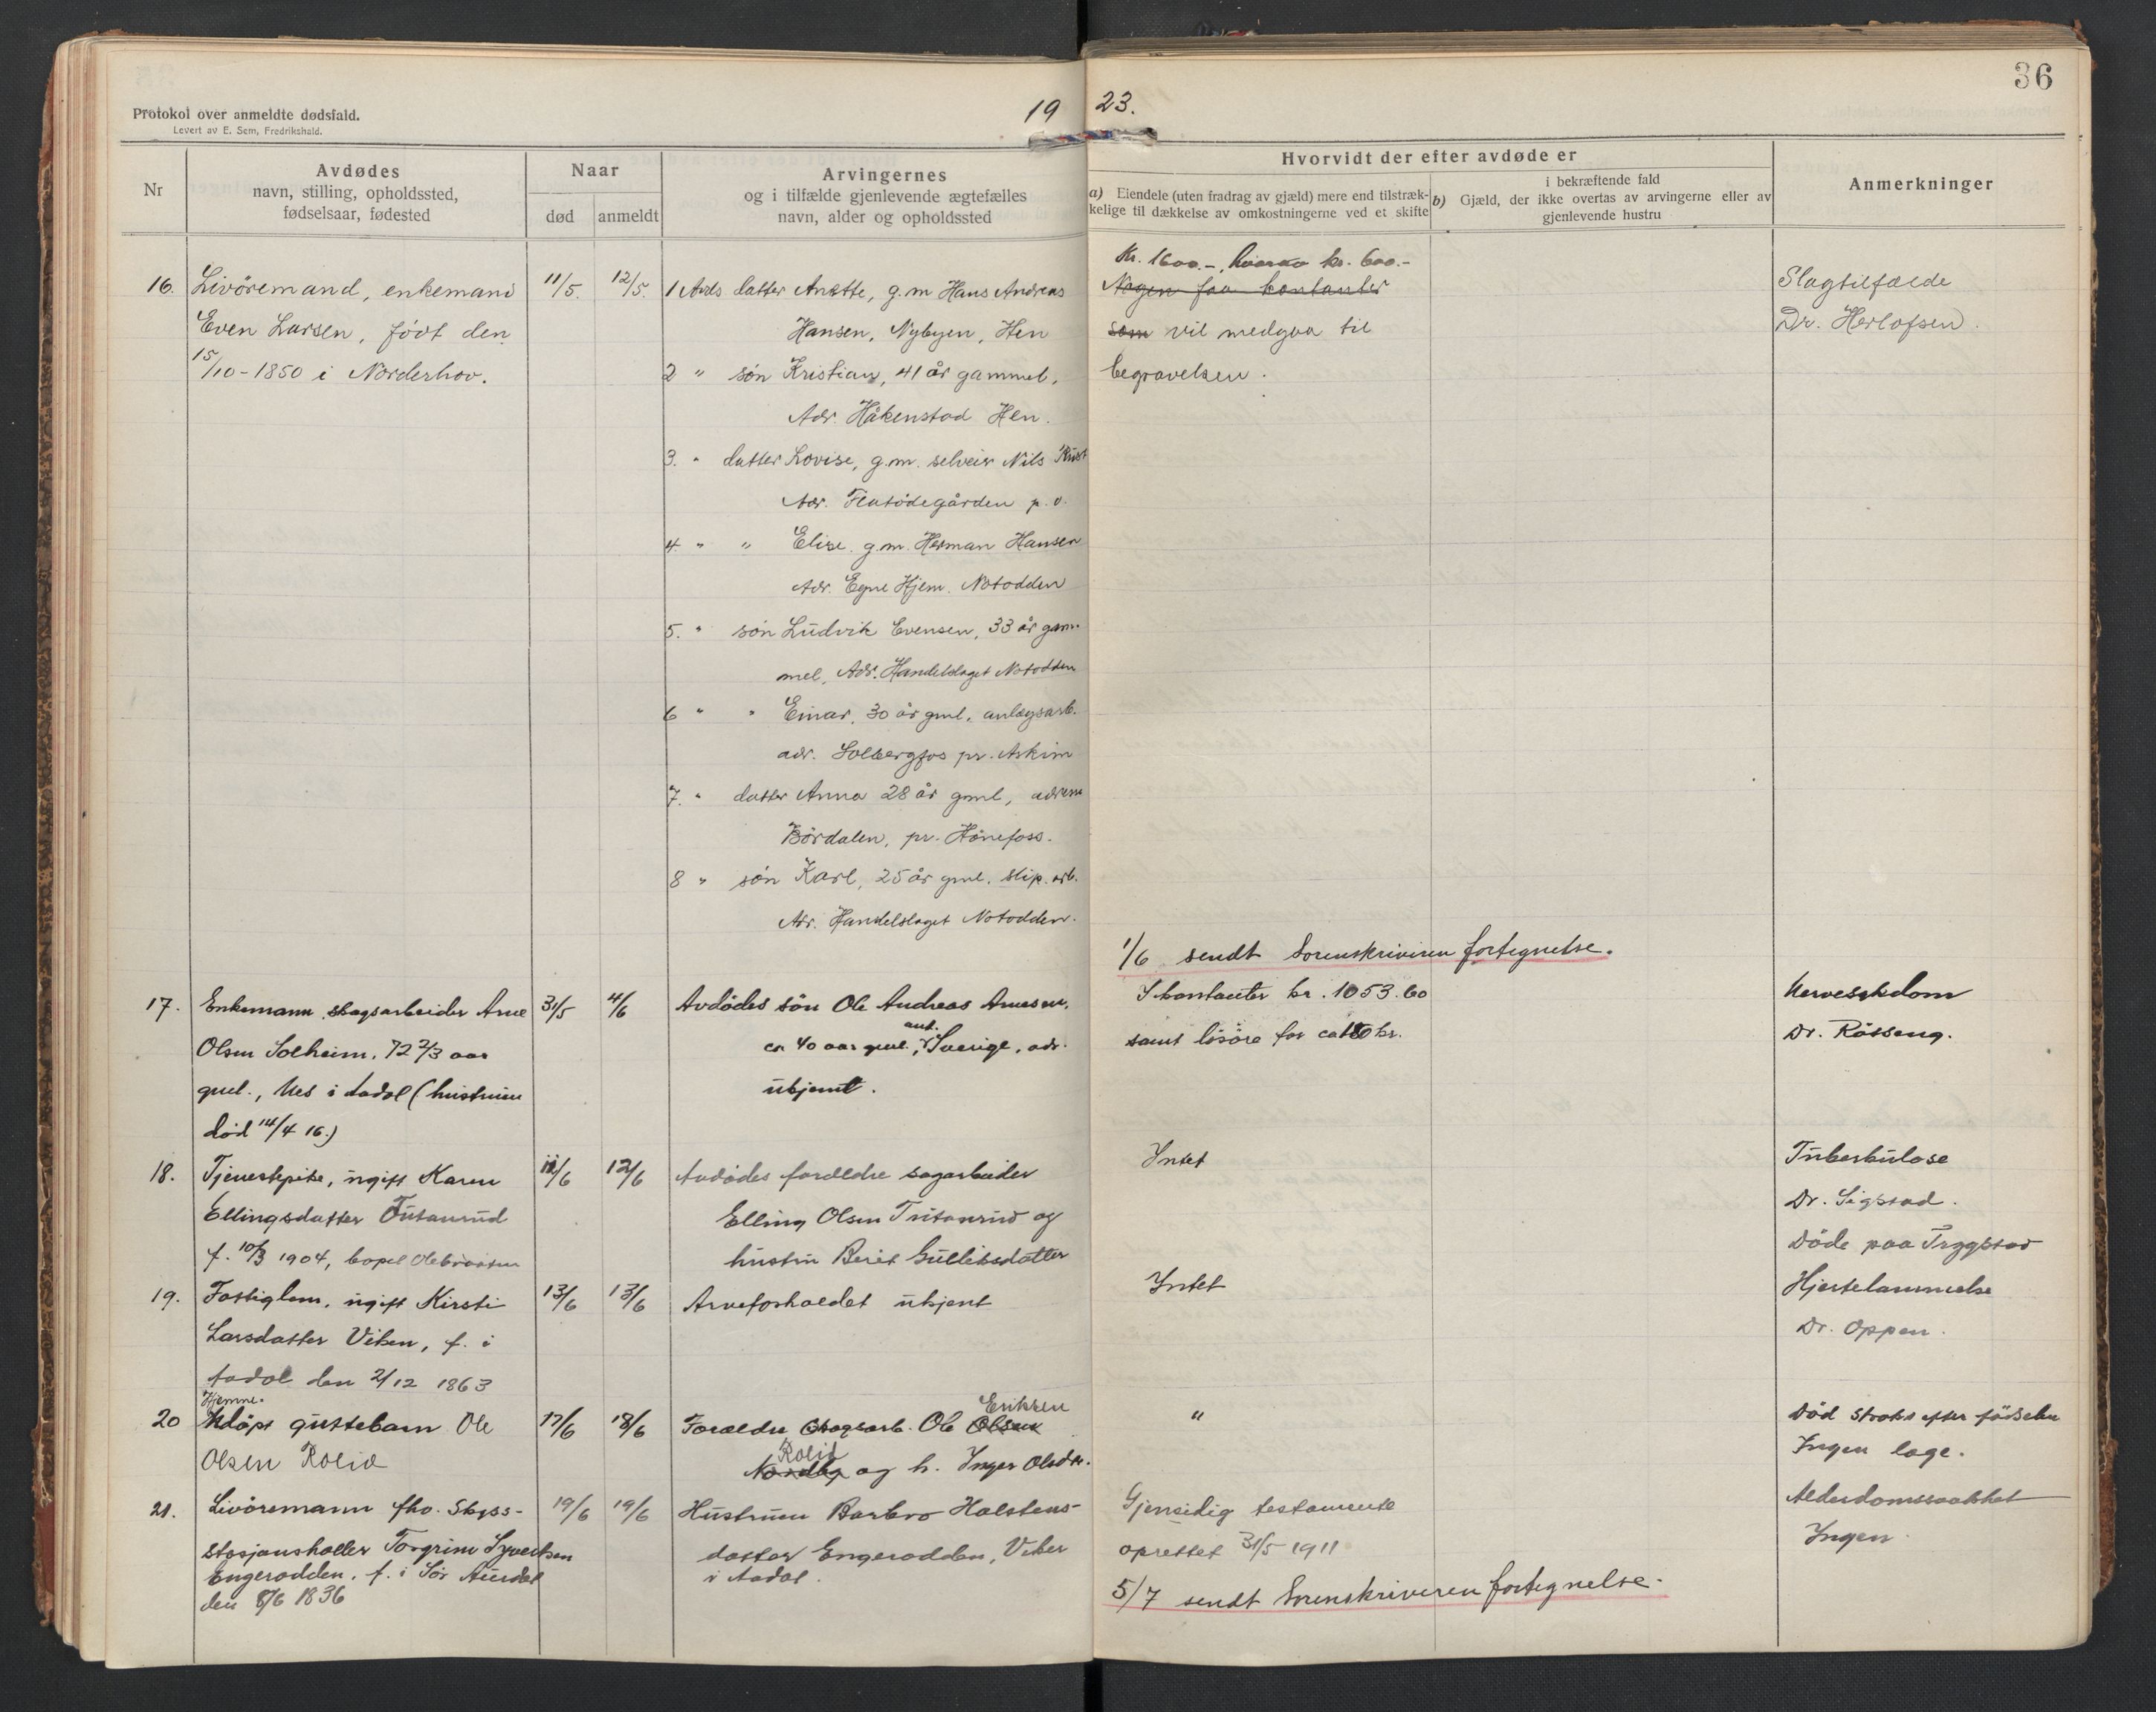 36
Protokol over anmeldte dødsfald.
Levert av E. Sem, Fredrikshald.
19 23.
Nr
Avdødes
navn, stilling, opholdssted,
fødselsaar, fødested
Naar
død
anmeldt
Arvingernes
og i tilfælde gjenlevende ægtefælles
navn, alder og opholdssted
Hvorvidt der efter avdøde er
a) Eiendele (uten fradrag av gjæld) mere end tilstræk-
kelige til dækkelse av omkostningerne ved et skifte
i bekræftende fald
b) Gjæld, der ikke overtas av arvingerne eller av
gjenlevende hustru
Anmerkninger
16. Livöremand, enkemand
Even Larsen, född den
15/10-1850 i Norderhov.
11/5. 12/5.
1 Avds datter Anette, g.m Hans Andreas
Hansen, Nybyen, Hen
2 " søn Kristian, 41 år gammel,
Adr. Håkenstad Hen.
3. " datter Lovise, g.m. selveier Nils
Adr. Flatödegården p.o.
4 " " Elise g.m. Herman Hansen
Adr. Egne Hjem. Notodden
5. " sön Ludvik Evensen, 33 år gam-
mel, Adr. Handelslaget Notodden
6 " " Einar, 30 år gml. anlægsarb.
adr. Solbergfos pr. Askim
7. " datter Anna 28 år gml, adresse
Bördalen, pr. Hönefoss.
8 " sön Karl, 25 år gml. slip.arb.
Adr. Handelslaget Notodden.
Kr. 1600.-, hvorav kr. 600.-
Nogen faa kontanter
som vil medgaa til
begravelsen.
1/6 sendt Sorenskriveren fortegnelse.
Slagtilfælde
Dr. Herlofsen.
17. Enkemann, skogsarbeider Arne
Olsen Solheim, 72 2/3 aar
gml., Nes i Aadal (hustruen
död 14/4 16.)
31/5 4/6
Avdödes sön Ole Andreas Arnesen,
ca 40 aar gml., ant. i Sverige, adr.
ukjent.
I kontanter kr. 1053.60
samt lösöre for ca kr.
Nervesykdom
Dr. Rösseng.
18. Tjenestepike, ugift Karen
Ellingsdatter Tutanrud
f. 10/3 1904, bopel Olebraaten
11/6 12/6
Avdödes foreldre sagarbeider
Elling Olsen Tutanrud og
hustru Berit Gulliksdatter
Intet
Tuberkulose
Dr. Sigstad.
Döde paa Tryggstad
19. Fattiglem, ugift Kirsti
Larsdatter Viken, f. i
Aadal den 2/12 1863
13/6 13/6
Arveforholdet ukjent
Intet
Hjertelammelse
Dr. Oppen.
20 Hjemme-
döpt guttebarn Ole
Olsen Rolid
17/6 18/6
Foreldre skogsarb. Ole Olsen Eriksen
Nordby Rolid og h. Inger Olsdtr.
"
Död straks efter födselen
Ingen lage.
21. Livöremann fho. Skyss-
stasjonsholder Torgrim Syvertsen
Engerodden, f. i Sör Aurdal
den 8/6 1836
19/6 19/6
Hustruen Barbro Halstens-
datter Engerodden, Viker
i Aadal.
Gjensidig testamente
oprettet 31/5 1911
5/7 sendt Sorenskriveren fortegnelse.
Alderdomssvakhet
Ingen